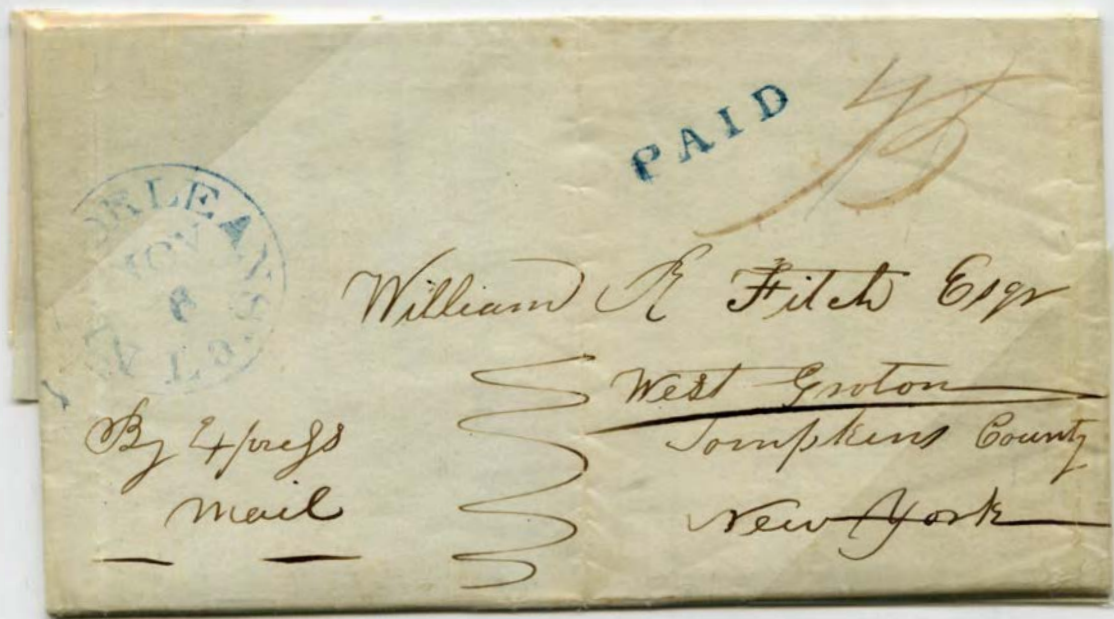 PAID
75
ORLEANS
NOV
8
William R Fitch Esqr
West Groton
Tompkins County
New York
By Express
Mail